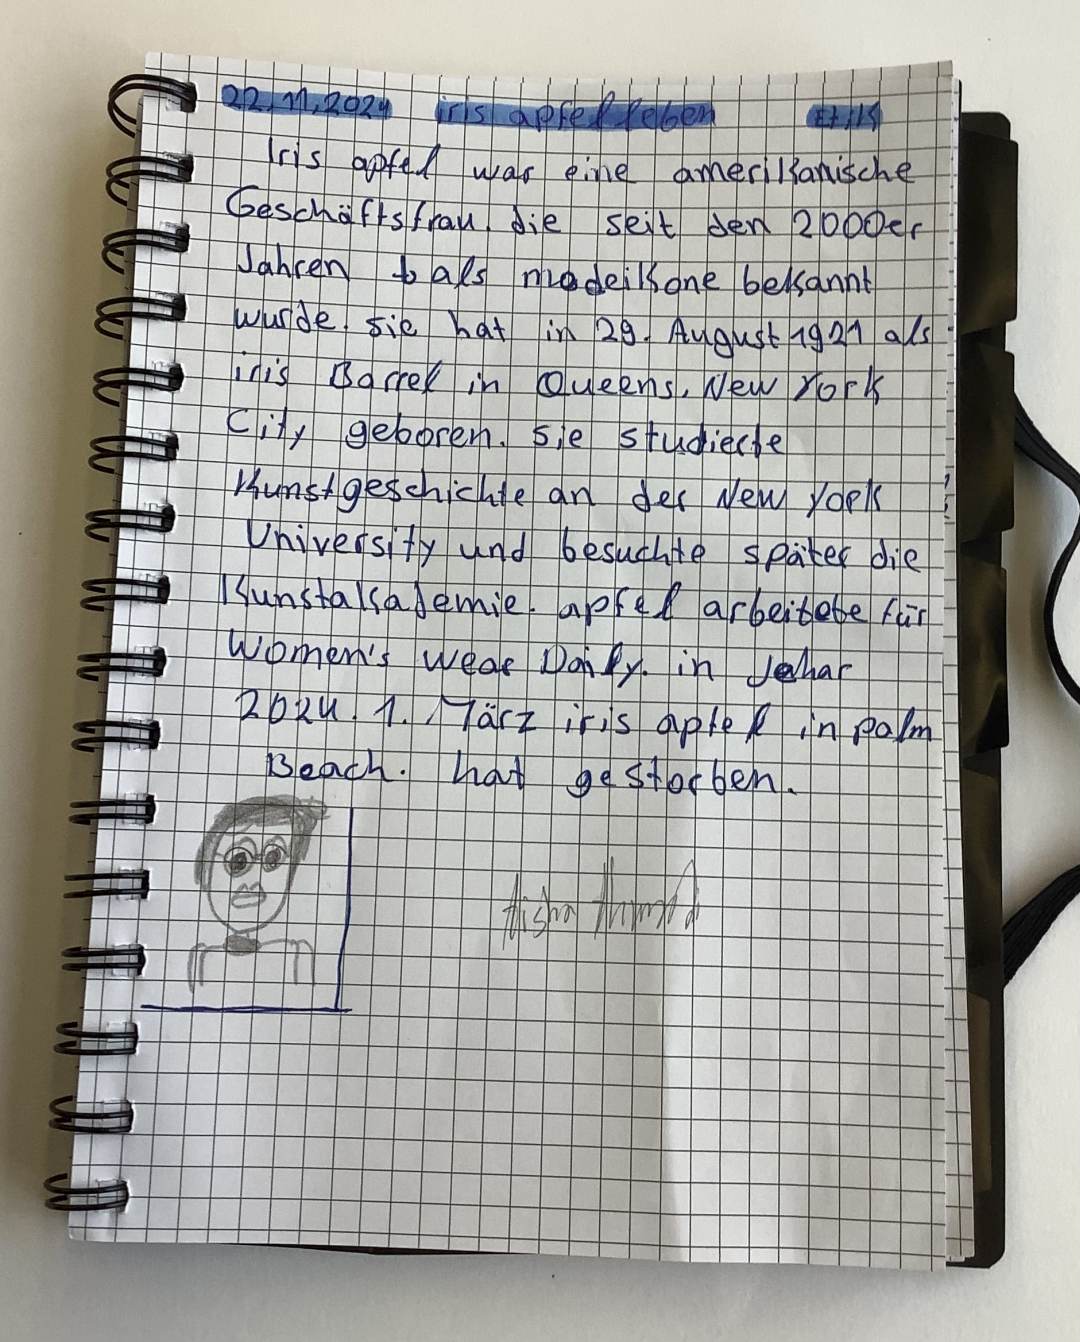 22.11.2024 iris apfel leben Ethik
Iris apfel war eine amerikanische
Geschäftsfrau, die seit den 2000er
Jahren als modeikone bekannt
wurde. sie hat in 29. August 1921 als
iris Barrel in Queens, New York
City geboren. sie studierte
Kunstgeschichte an der New York
University und besuchte später die
Kunstakademie. apfel arbeitete für
Women's Wear Daily. in Jahar
2024. 1. März iris apfel in palm
Beach. hat gestorben.
Aisha